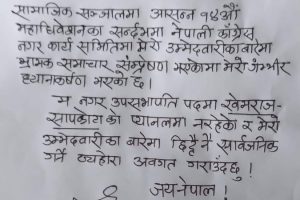 सामाजिक सञ्जालमा आसन्न १४औं
महाधिवेशनका सन्दर्भमा नेपाली काँग्रेस
नगर कार्य समितिमा मेरो उम्मेदवारीका बारेमा
भ्रामक समाचार संम्प्रेषण भएकोमा मेरो गम्भीर
ध्यानाकर्षण भएको छ ।
म नगर उपसभापति पदमा खेमराज
सापकोटा को प्यानलमा नरहेको र मेरो
उम्मेदवारीका बारेमा छिट्टै नै सार्वजनिक
गर्ने व्यहोरा अवगत गराउँदछु !
जयनेपाल !